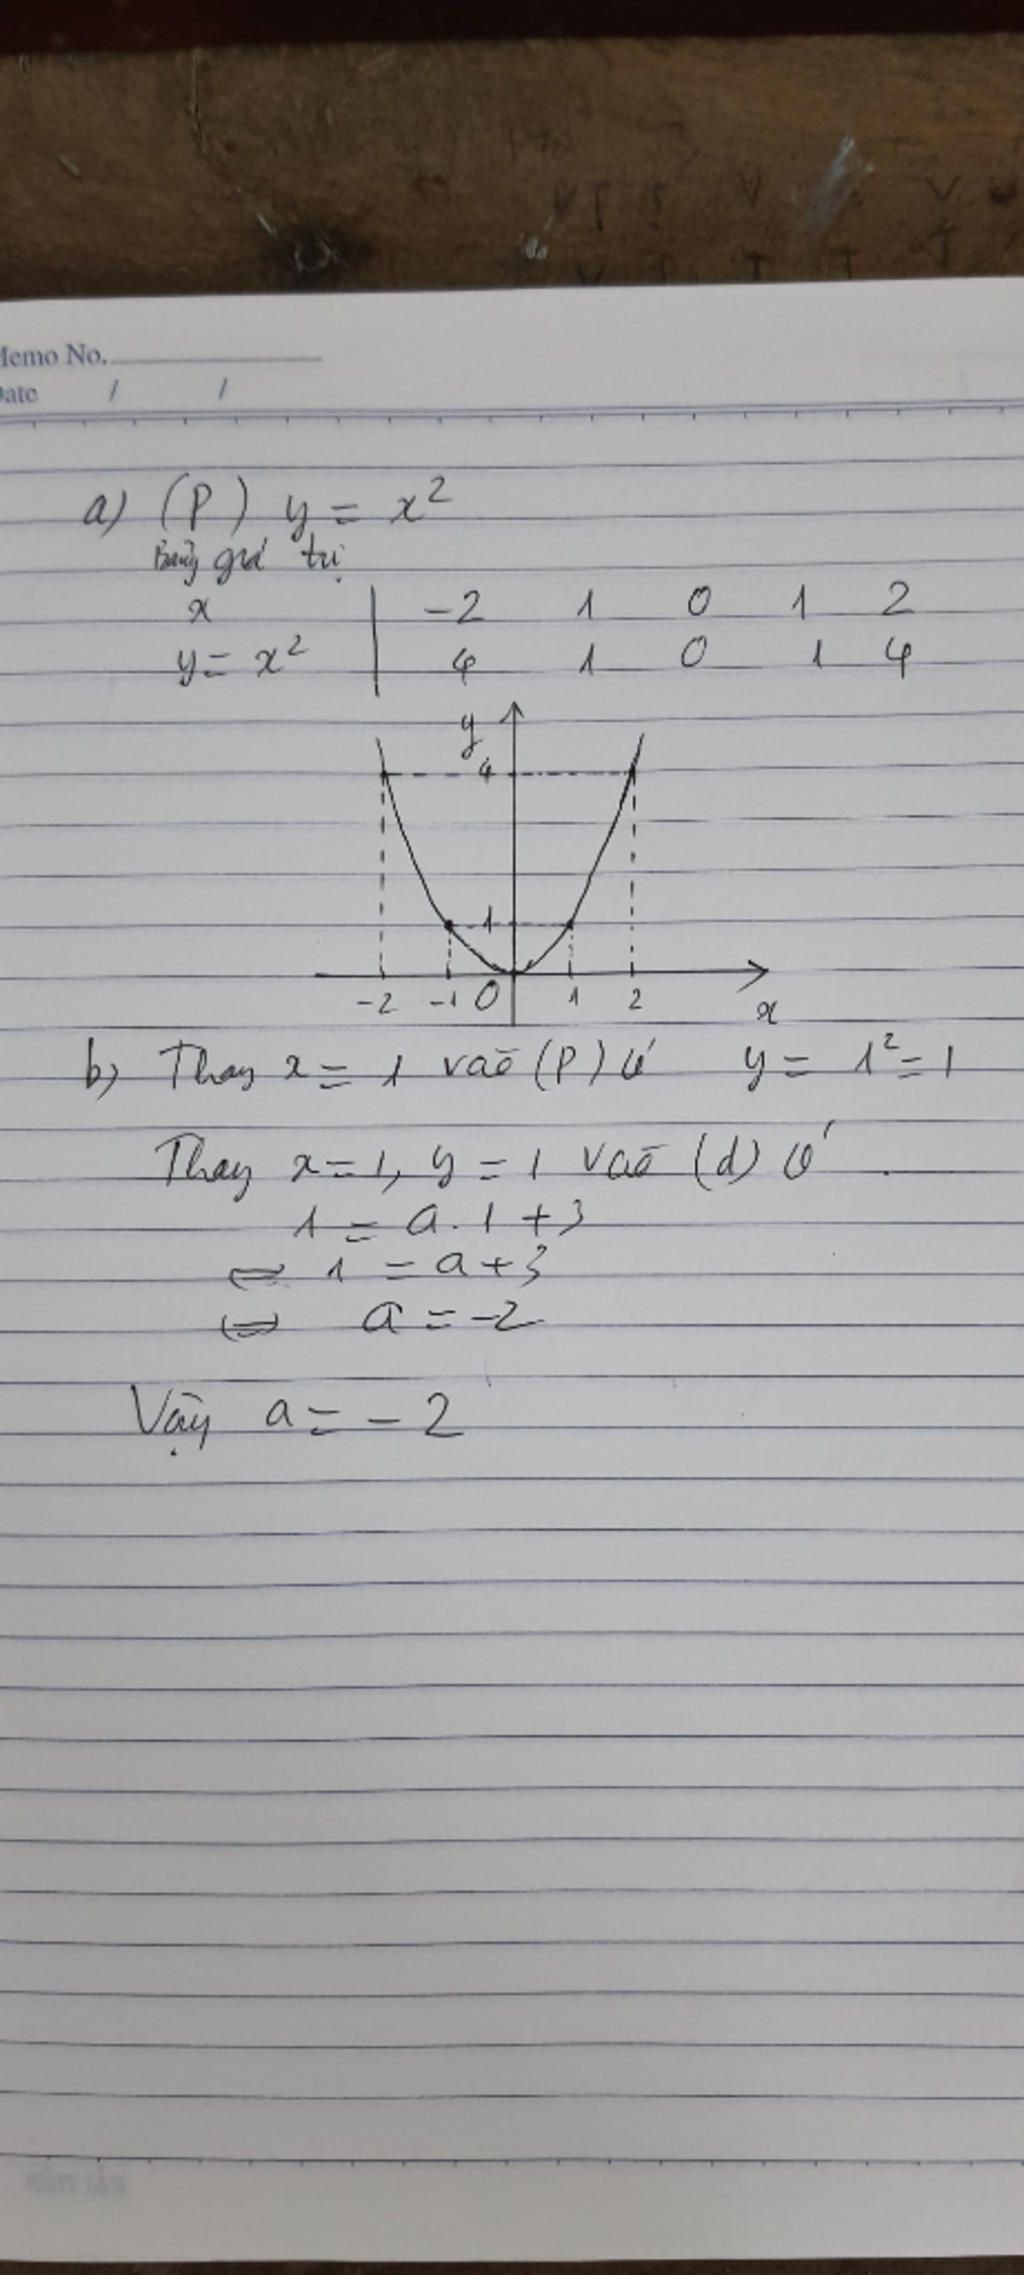 Memo No.
Date / /
a) (P) y = x²
Bảng giá trị
x | -2 1 0 1 2
y = x² | 4 1 0 1 4
y
4
1
-2 -1 O 1 2
x
b) Thay x = 1 vào (P) có y = 1² = 1
Thay x = 1, y = 1 vào (d) có
1 = a. 1 + 3
⇔ 1 = a + 3
⇔ a = -2
Vậy a = -2